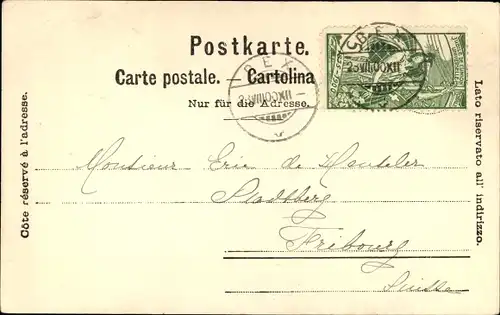 Postkarte.
Carte postale. — Cartolina
Nur für die Adresse.
Côte réservé à l'adresse.
Lato riservato all' indirizzo.
BEX
Monsieur Eric de
Stadtberg
Fribourg
Suisse